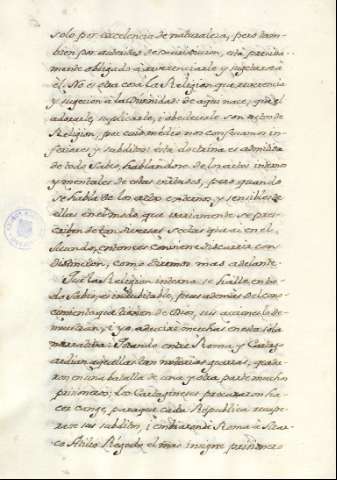 solo por excelencia de naturaleza, pero tam-
bien por autoridad de jurisdiccion, está precisa-
mente obligado a reverenciarle y sugetarse a
él. No es otra cosa la Religion que reverencia
y sugecion a la Divinidad: de aqui nace, que el
adorarle, suplicarle, i obedecerle son actos de
Religion, por cuio medio nos confesamos in-
feriores y subditos: esta doctrina es admitida
de todo Sabio, hablandose de los actos internos
y mentales de estas virtudes, pero quando
se habla de los actos externos, y sensibles de
ellas en el modo que variamente se pres-
criben de tan diversas Sectas que ai en el
mundo, entonces conviene discurrir con
distincion, como diremos mas adelante.
Que la Religion interna se halle en to-
do Sabio, es indubitable, pues ademas del co-
nocimiento que tienen de Dios, sus acciones lo de-
muestran, i yo aduciré muchas en esta sola
narrativa: Quando entre Roma y Carta-
go ardian aquellas tan notorias guerras, queda-
ron en una batalla de una y otra parte muchos
prisioneros; los Cartagineses procuraron ha-
cer cange, para que cada Republica recupe-
rase sus subditos, i embiaron a Roma a Mar-
co Atilio Régulo el mas insigne prisionero